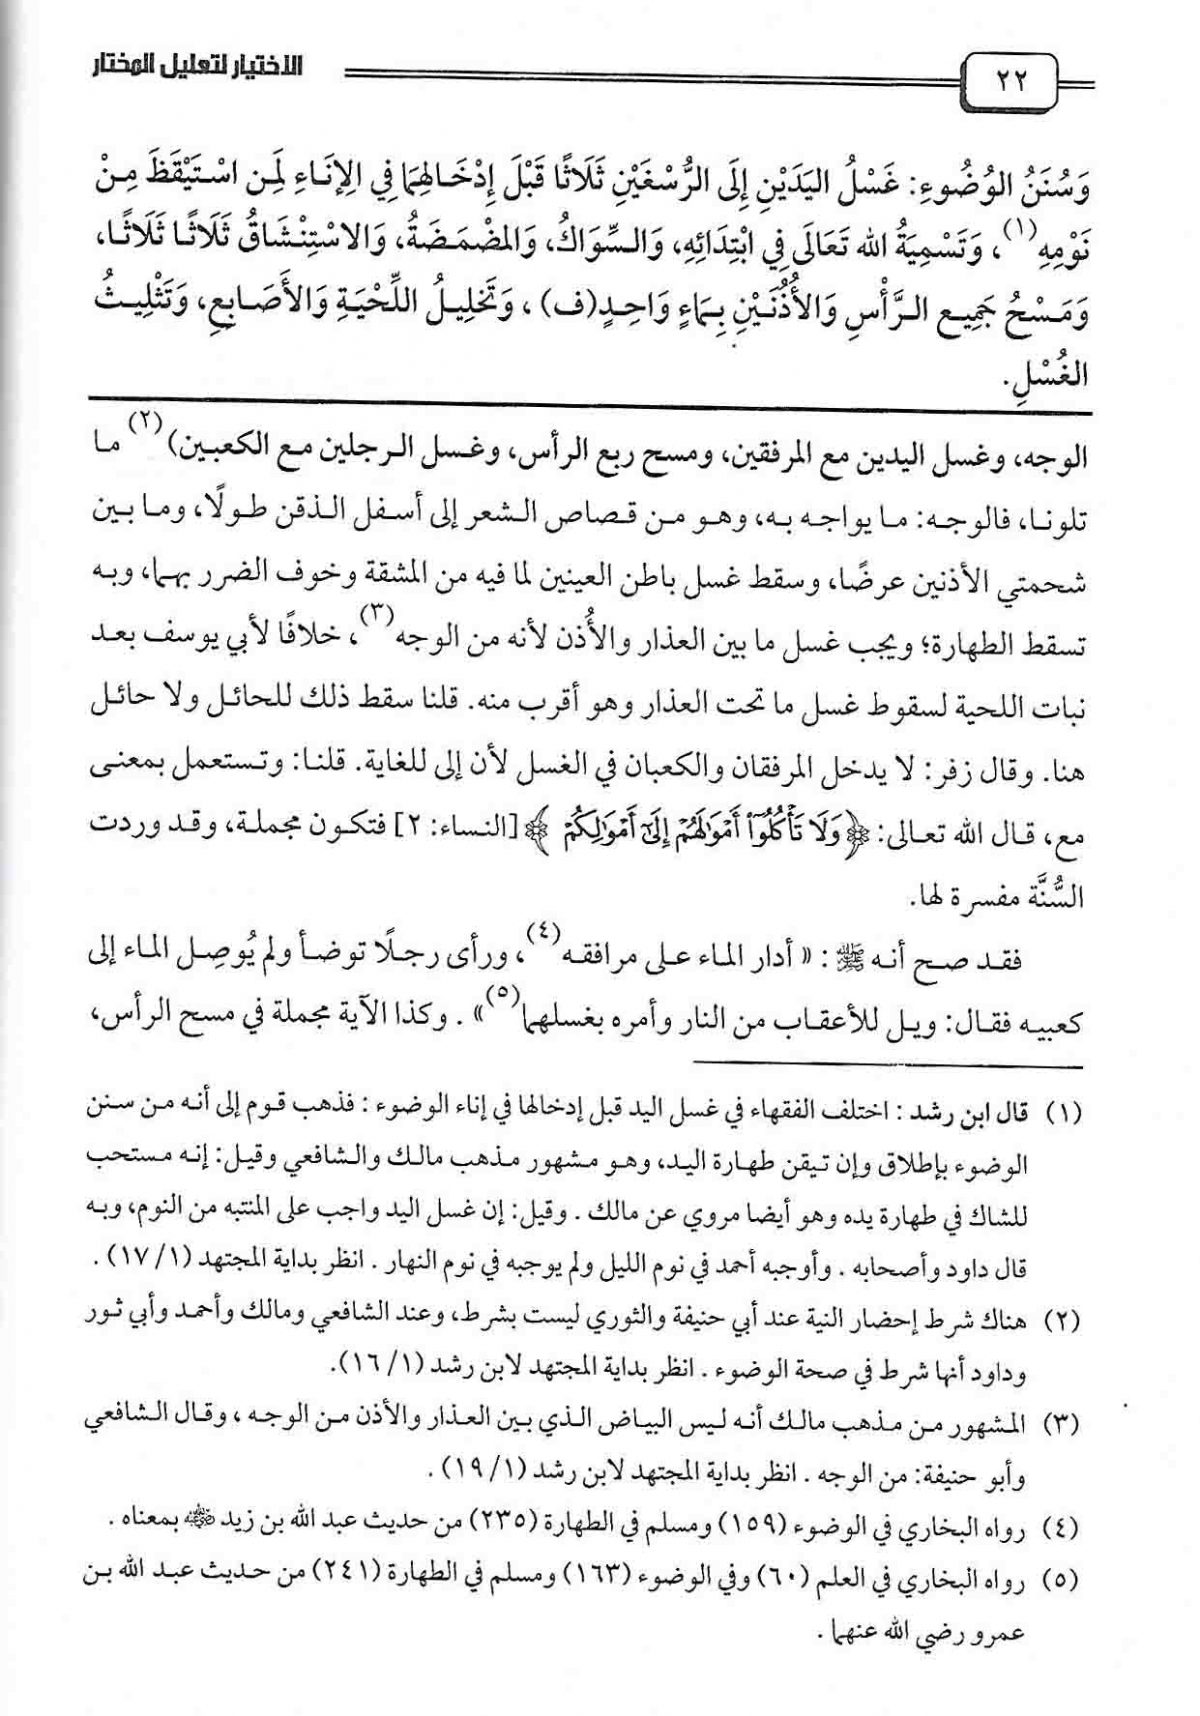 الاختيار لتعليل المختار
٢٢
وَسُنَنُ الوُضُوءِ: غَسْلُ اليَدَيْنِ إِلَى الرُّسْغَيْنِ ثَلَاثًا قَبْلَ إِدْخَالِهِمَا فِي الإِنَاءِ لِمَن اسْتَيْقَظَ مِنْ
نَوْمِهِ(١)، وَتَسْمِيَةُ الله تَعَالَى فِي ابْتِدَائِهِ، وَالسِّوَاكُ، وَالمَضْمَضَةُ، وَالاسْتِنْشَاقُ ثَلَاثًا ثَلَاثًا،
وَمَسْحُ جَمِيعِ الرَّأْسِ وَالأُذُنَيْنِ بِمَاءٍ وَاحِدٍ(ف)، وَتَخلِيلُ اللِّحْيَةِ وَالأَصَابِعِ، وَتَثْلِيثُ
الغُسْلِ.
الوجه، وغسل اليدين مع المرفقين، ومسح ربع الرأس، وغسل الرجلين مع الكعبين)(٢) ما
تلونا، فالوجه: ما يواجه به، وهو من قصاص الشعر إلى أسفل الذقن طولًا، وما بين
شحمتي الأذنين عرضًا، وسقط غسل باطن العينين لما فيه من المشقة وخوف الضرر بهما، وبه
تسقط الطهارة؛ ويجب غسل ما بين العذار والأُذن لأنه من الوجه(٣)، خلافًا لأبي يوسف بعد
نبات اللحية لسقوط غسل ما تحت العذار وهو أقرب منه. قلنا سقط ذلك للحائل ولا حائل
هنا. وقال زفر: لا يدخل المرفقان والكعبان في الغسل لأن إلى للغاية. قلنا: وتستعمل بمعنى
مع، قال الله تعالى: ﴿وَلَا تَأْكُلُوٓا۟ أَمْوَٰلَهُمْ إِلَىٰٓ أَمْوَٰلِكُمْ﴾ [النساء: ٢] فتكون مجملة، وقد وردت
السُّنَّة مفسرة لها.
فقد صح أنه ﷺ: «أدار الماء على مرافقه(٤)، ورأى رجلًا توضأ ولم يُوصِل الماء إلى
كعبيه فقال: ويل للأعقاب من النار وأمره بغسلهما(٥)». وكذا الآية مجملة في مسح الرأس،
(١) قال ابن رشد : اختلف الفقهاء في غسل اليد قبل إدخالها في إناء الوضوء : فذهب قوم إلى أنه من سنن
الوضوء بإطلاق وإن تيقن طهارة اليد، وهو مشهور مذهب مالك والشافعي وقيل: إنه مستحب
للشاك في طهارة يده وهو أيضا مروي عن مالك . وقيل: إن غسل اليد واجب على المنتبه من النوم، وبه
قال داود وأصحابه . وأوجبه أحمد في نوم الليل ولم يوجبه في نوم النهار . انظر بداية المجتهد (١٧/١) .
(٢) هناك شرط إحضار النية عند أبي حنيفة والثوري ليست بشرط، وعند الشافعي ومالك وأحمد وأبي ثور
وداود أنها شرط في صحة الوضوء . انظر بداية المجتهد لابن رشد (١٦/١).
(٣) المشهور من مذهب مالك أنه ليس البياض الذي بين العذار والأذن من الوجه ، وقال الشافعي
وأبو حنيفة: من الوجه . انظر بداية المجتهد لابن رشد (١٩/١) .
(٤) رواه البخاري في الوضوء (١٥٩) ومسلم في الطهارة (٢٣٥) من حديث عبد الله بن زيد رضي الله عنه بمعناه .
(٥) رواه البخاري في العلم (٦٠) وفي الوضوء (١٦٣) ومسلم في الطهارة (٢٤١) من حديث عبد الله بن
عمرو رضي الله عنهما .